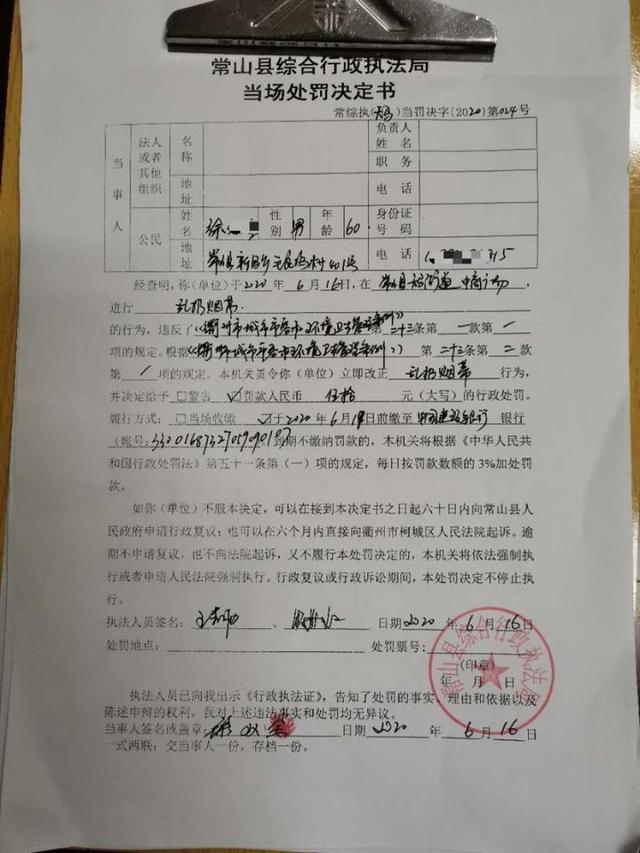 常山县综合行政执法局
当场处罚决定书
常综执()当罚决字[2020]第024号
当事人
法人或者其他组织
名称
负责人姓名
职务
地址
电话
公民
姓名 徐 性别 男 年龄 60 身份证号码
地址 常山县新昌乡 401号 电话 1 15
经查明，你(单位)于2020年6月16日，在常山县 中商广场
进行 乱扔烟蒂
的行为，违反了《衢州市城市市容和环境卫生管理条例》第二十三条第一款第1
项的规定。根据《衢州市城市市容和环境卫生管理条例》第二十三条第二款
第1项的规定。本机关责令你(单位)立即改正 乱扔烟蒂 行为，
并决定给予□警告 ☑罚款人民币 伍拾 元(大写)的行政处罚。
履行方式：□当场收缴 ☑于2020年6月18日前缴至中国建设银行 银行
(帐号:33201687327059090197)到期不缴纳罚款的，本机关将根据《中华人民共
和国行政处罚法》第五十一条第（一）项的规定，每日按罚款数额的3%加处罚
款。
如你(单位)不服本决定，可以在接到本决定书之日起六十日内向常山县人
民政府申请行政复议；也可以在六个月内直接向衢州市柯城区人民法院起诉。逾
期不申请复议，也不向法院起诉，又不履行本处罚决定的，本机关将依法强制执
行或者申请人民法院强制执行。行政复议或行政诉讼期间，本处罚决定不停止执
行。
执法人员签名： 、 日期2020年6月16日
处罚地点： 处罚票号：
(印章)
年 月 日
常山县综合行政执法局
执法人员已向我出示《行政执法证》，告知了处罚的事实、理由和依据以及
陈述申辩的权利。我对上述违法事实和处罚均无异议。
当事人签名或盖章： 日期 2020 年 6月16日
一式两联：交当事人一份，存档一份。